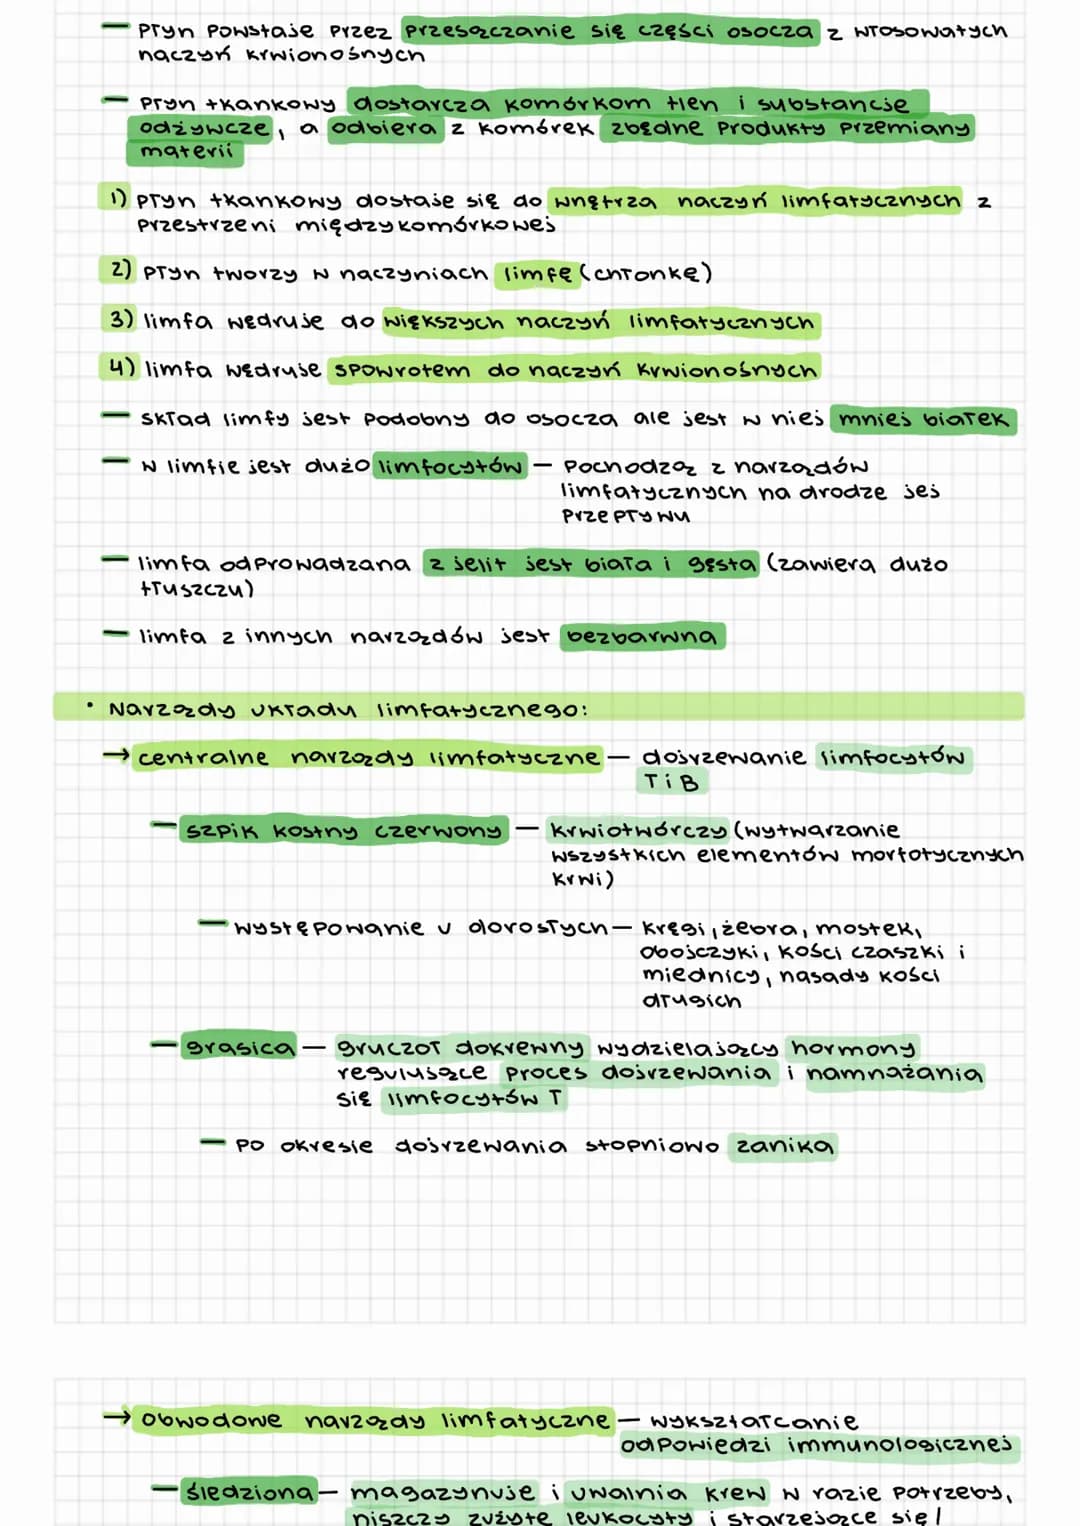 — płyn powstaje przez przesączanie się części osocza z włosowatych
naczyń krwionośnych
— płyn tkankowy dostarcza komórkom tlen i substancje
odżywcze, a odbiera z komórek zbędne produkty przemiany
materii
1) płyn tkankowy dostaje się do wnętrza naczyń limfatycznych z
przestrzeni międzykomórkowej
2) płyn tworzy w naczyniach limfę (chłonkę)
3) limfa wędruje do większych naczyń limfatycznych
4) limfa wędruje spowrotem do naczyń krwionośnych
— skład limfy jest podobny do osocza ale jest w niej mniej białek
— w limfie jest dużo limfocytów — pochodzą z narządów
limfatycznych na drodze jej
przepływu
— limfa odprowadzana z jelit jest biała i gęsta (zawiera dużo
tłuszczu)
— limfa z innych narządów jest bezbarwna
• Narządy układu limfatycznego:
→ centralne narządy limfatyczne — dojrzewanie limfocytów
T i B
— szpik kostny czerwony — krwiotwórczy (wytwarzanie
wszystkich elementów morfotycznych
krwi)
— występowanie u dorosłych — kręgi, żebra, mostek,
obojczyki, kości czaszki i
miednicy, nasady kości
długich
— grasica — gruczoł dokrewny wydzielający hormony
regulujące proces dojrzewania i namnażania
się limfocytów T
— po okresie dojrzewania stopniowo zanika
→ obwodowe narządy limfatyczne — wykształcanie
odpowiedzi immunologicznej
— śledziona — magazynuje i uwalnia krew w razie potrzeby,
niszczy zużyte leukocyty i starzejące się /